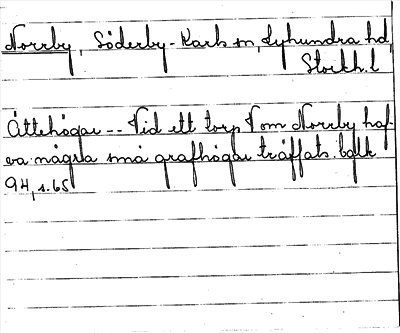 Norrby, Söderby-Karls sn, Lyhundra hd,
Stockh. l
Ättehögar -- Vid ett torp V om Norrby haf-
va några små grafhögar träffats.
94, s. 65